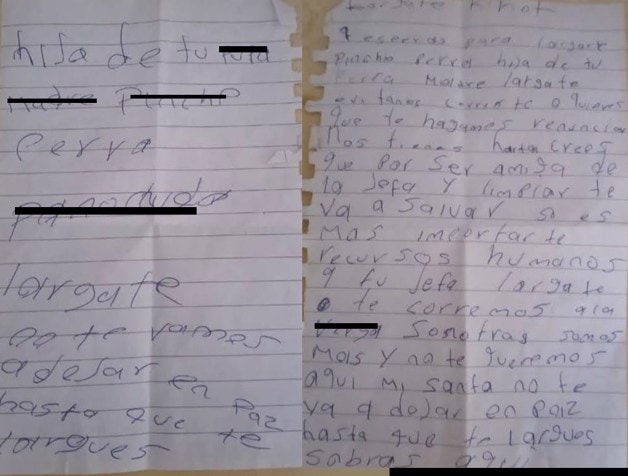 hija de tu puta
madre pinche
perra
largate
no te vamos
a dejar en
hasta que paz
largues te
largate
9 para largarte
pinche perra hija de tu
perra madre largate
evitanos correrte o quieres
que te hagamos renunciar
Nos tienes harta crees
que por ser amiga de
la jefa y limpiar te
va a salvar si es
mas importante
recursos humanos
q tu jefa largate
o te corremos ala
verga sonotras somos
mais y no te queremos
aqui mi santa no te
va a dejar en paiz
hasta que te largues
sabras